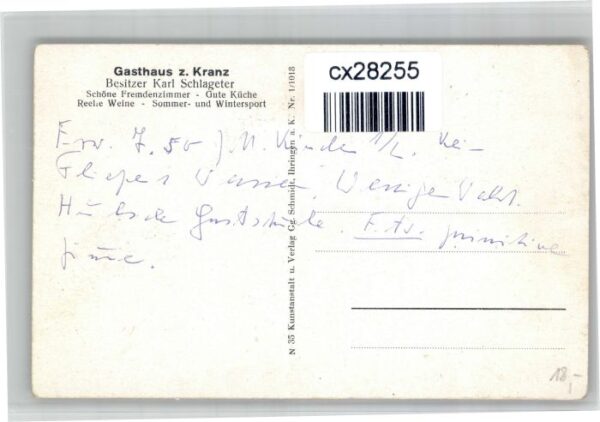 Gasthaus z. Kranz
Besitzer Karl Schlageter
Schöne Fremdenzimmer - Gute Küche
Reele Weine - Sommer- und Wintersport
cx28255
N 35 Kunstanstalt u. Verlag Gg. Schmidt, Ihringen a. K. Nr. 1/1013
7.50 Kinder 1/2. Kein
Fließend Wasser. Wenige
Hübsche Gaststube. primitive
18,-